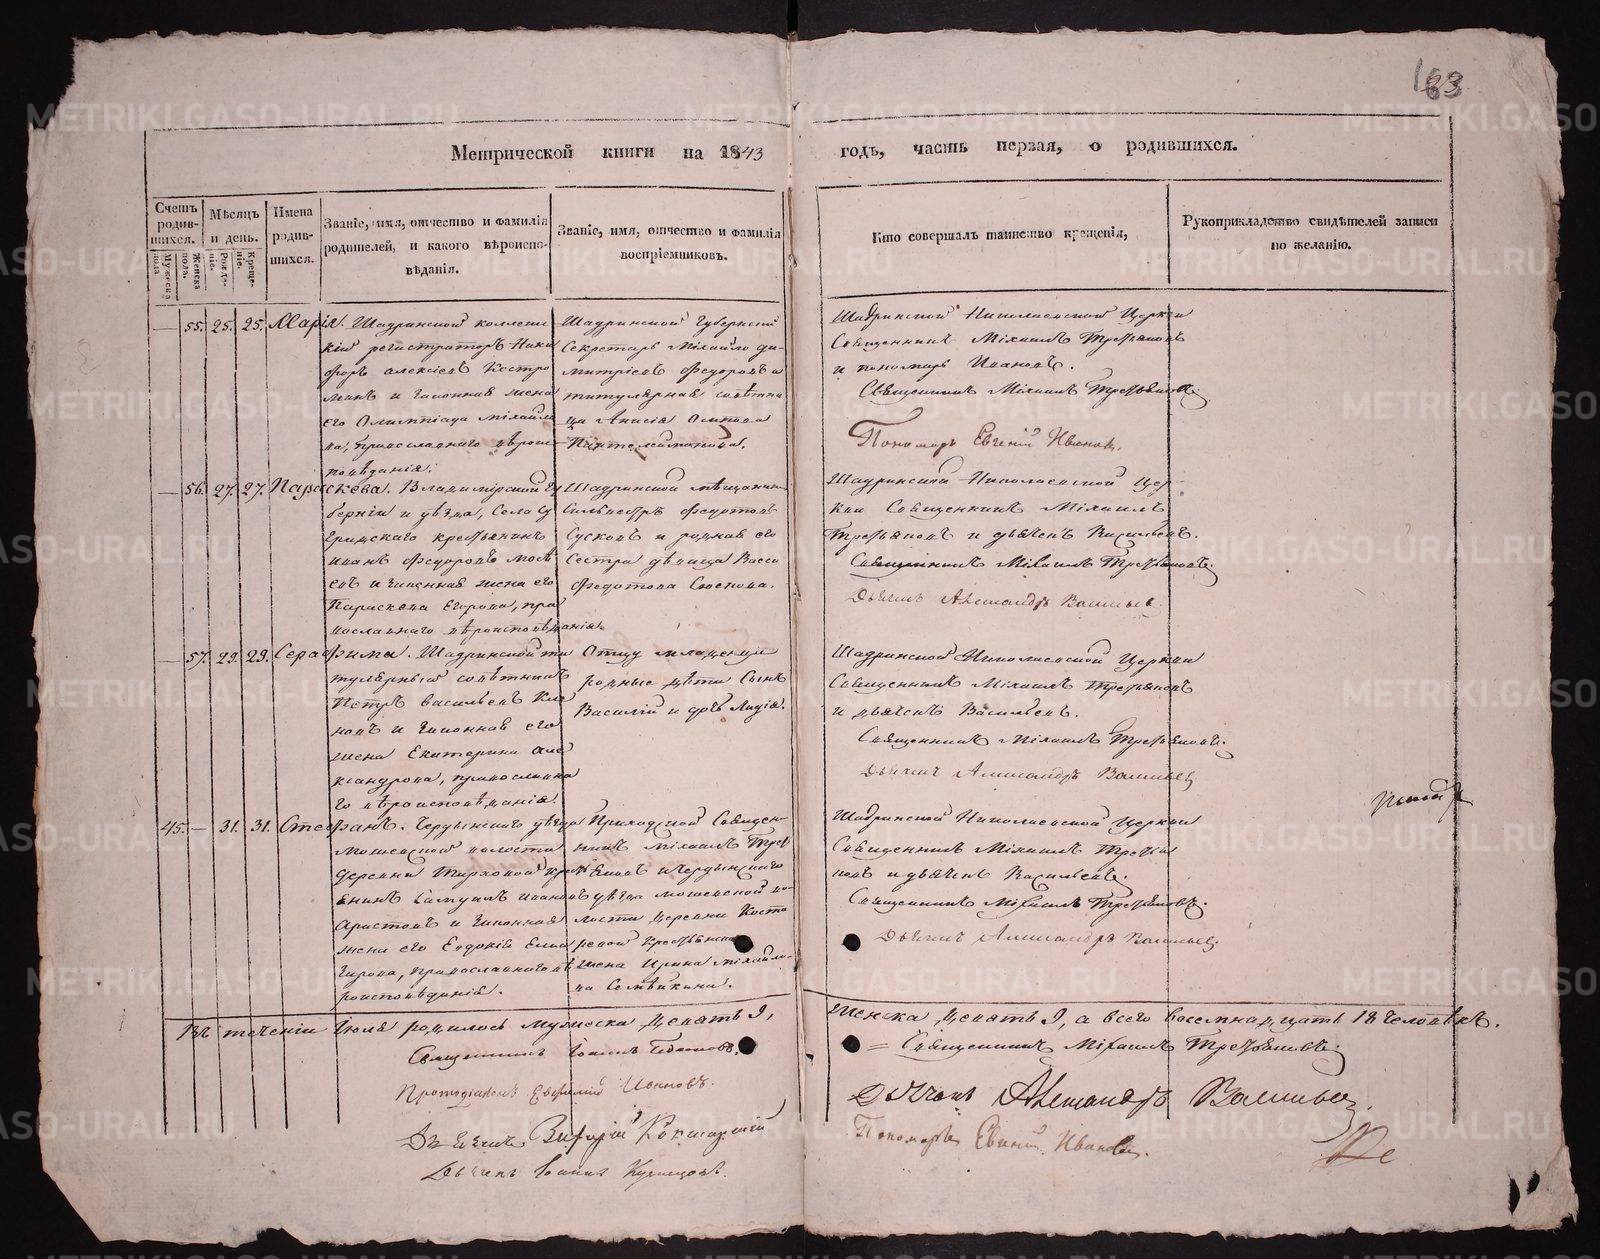 163
Метрической книги на 1843 годъ, часть первая, о родившихся.
Счетъ родившихся.
Мужеска пола.
Женска пола.
Мѣсяцъ и день.
Рожденіе.
Крещеніе.
Имена родившихся.
Званіе, имя, отчество и фамилія
родителей, и какого вѣроиспо-
вѣданія.
Званіе, имя, отчество и фамилія
воспріемниковъ.
Кто совершалъ таинство крещенія,
Рукоприкладство свидѣтелей записи
по желанію.
55. 25. 25. Марія.
Шадринской коллежс
кій регистраторъ Ники
форъ Алексѣевъ Костро
минъ и законная жена
его Олимпіада Михайло
ва, православнаго вѣроис
повѣданія.
Шадринской Губернскій
Секретарь Михайло Ди-
митріевъ Федоровъ и
титулярная совѣтни
ца Анисія
Пантелеимонова.
Шадринской Николаевской Церкви
Священникъ Михаилъ Третьяковъ
и пономарь Ивановъ.
Священникъ Михаилъ Третьяковъ
Пономарь Евгеній Ивановъ.
56. 27. 27. Параскева.
Владимірской Гу
берніи и уѣзда, Села
крестьянинъ
Иванъ Федоровъ
и законная жена его
Параскева Егорова, пра
вославнаго вѣроисповѣданія.
Шадринской мѣщанинъ
Сильвестръ Федотовъ
и родная его
Сестра дѣвица Васса
Федотова
Шадринской Николаевской Цер-
кви Священникъ Михаилъ
Третьяковъ и дьячекъ Васильевъ.
Священникъ Михаилъ Третьяковъ.
Дьячекъ Александръ Васильевъ.
57. 29. 29. Серафима.
Шадринской ти
тулярный совѣтникъ
Петръ Васильевъ
и законная его
жена Екатерина Але
ксандрова, православна
го вѣроисповѣданія.
Отцу младенца
родные дѣти Сынъ
Василій и дочь Лидія.
Шадринской Николаевской Церкви
Священникъ Михаилъ Третьяковъ
и дьячекъ Васильевъ.
Священникъ Михаилъ Третьяковъ.
Дьячекъ Александръ Васильевъ
45. 31. 31. Стефанъ.
Чердынскаго уѣзда
Мошевской волости
деревни кресть
янинъ Самуилъ Ивановъ
Аристовъ и законная
жена его Евдокія
православнаго вѣ
роисповѣданія.
Приходской Священ-
никъ Михаилъ Треть
яковъ и Чердынскаго
уѣзда Мошевской во-
лости деревни
крестьянская
жена Ирина Михайло-
ва
Шадринской Николаевской Церкви
Священникъ Михаилъ Третья
ковъ и дьячекъ Васильевъ.
Священникъ Михаилъ Третьяковъ.
Дьячекъ Александръ Васильевъ.
Въ теченіи Іюля родилось мужеска девять 9, женска девять 9, а всего восемнадцать 18 человѣкъ.
Священникъ Іоаннъ
Священникъ Михаилъ Третьяковъ.
Протодіаконъ Ивановъ.
Дьячекъ Александръ Васильевъ
Дьячекъ
Пономарь Евгеній Ивановъ.
Дьячекъ Іоаннъ Кузнецовъ.
METRIKI.GASO-URAL.RU